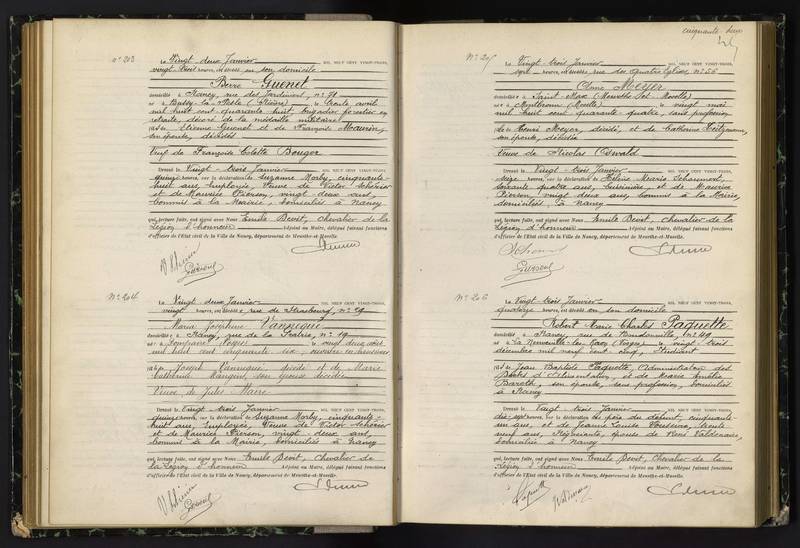 n° 203
Le Vingt deux Janvier MIL NEUF CENT VINGT-TROIS,
vingt trois heures, est décédé en son domicile
Pierre Guenet
domicilié à Nancy, rue des Jardiniers, n°
né à Bussy-la-Pesle le trente avril
mil huit cent quarante huit, brigadier forestier en
retraite, décoré de la médaille militaire
fils de Etienne Guenet et de Françoise Maurin,
son épouse, décédés
Veuf de Françoise Colette Bouger
Dressé le Vingt-trois Janvier MIL NEUF CENT VINGT-TROIS,
quinze heures, sur la déclaration de Suzanne Morby, cinquante-
huit ans, Employée, Veuve de Victor
et de Maurice Pierson, vingt-deux ans,
commis à la Mairie, domiciliés à Nancy
qui, lecture faite, ont signé avec Nous Emile Devit, Chevalier de la
Légion d'honneur Adjoint au Maire, délégué faisant fonctions
d'officier de l'Etat civil de la Ville de Nancy, département de Meurthe-et-Moselle.
N° 204
Le Vingt deux Janvier MIL NEUF CENT VINGT-TROIS,
vingt heures, est décédée, rue de Strasbourg, n°
Marie Joséphine Vannequé
domiciliée à Nancy, rue de la Prairie, n° 19
née à Dompaire (Vosges) le vingt deux
mil huit cent cinquante six, ouvrière
fille de Joseph Vannequé décédé et de Marie
Catherine Mangin, son épouse décédée
Veuve de Jules Maire
Dressé le Vingt-trois Janvier MIL NEUF CENT VINGT-TROIS,
quinze heures, sur la déclaration de Suzanne Morby, cinquante-
huit ans, Employée, Veuve de Victor
et de Maurice Pierson, vingt-deux ans,
commis à la Mairie, domiciliés à Nancy
qui, lecture faite, ont signé avec Nous Emile Devit, Chevalier de
la Légion d'honneur Adjoint au Maire, délégué faisant fonctions
d'officier de l'Etat civil de la Ville de Nancy, département de Meurthe-et-Moselle.
cinquante deux
N° 205
Le Vingt trois Janvier MIL NEUF CENT VINGT-TROIS,
sept heures, est décédée rue des Quatre Eglises, n° 56
Claire Meyer
domiciliée à Saint-Max (Meurthe & Moselle)
née à Montbronn (Moselle) le vingt mai
mil huit cent quarante quatre, sans profession
fille de Henri Meyer, décédé, et de Catherine
son épouse, décédée
Veuve de Nicolas Oswald
Dressé le Vingt-trois Janvier MIL NEUF CENT VINGT-TROIS,
seize heures, sur la déclaration de Marie
soixante quatre ans, cuisinière, et de Maurice
Pierson, vingt deux ans, commis à la Mairie,
domiciliés à Nancy
qui, lecture faite, ont signé avec Nous Emile Devit, Chevalier de la
Légion d'honneur Adjoint au Maire, délégué faisant fonctions
d'officier de l'Etat civil de la Ville de Nancy, département de Meurthe-et-Moselle.
N° 206
Le Vingt trois Janvier MIL NEUF CENT VINGT-TROIS,
quatorze heures, est décédé en son domicile
Robert Marie Charles Paquotte
domicilié à Nancy, rue de n° 49
né à La Neuveville-les-Raon (Vosges) le vingt trois
décembre mil neuf cent cinq, Etudiant
fils de Jean Baptiste Paquotte, Administrateur des
d'Alimentation, et de Marie Emélie
Baroth, son épouse, sans profession, domiciliés
à Nancy
Dressé le Vingt-trois Janvier MIL NEUF CENT VINGT-TROIS,
dix-sept heures, sur la déclaration du père du défunt, cinquante-
un ans, et de Jeanne Louise trente-
neuf ans, Négociante, épouse de René Valdenaire,
domiciliés à Nancy
qui, lecture faite, ont signé avec Nous Emile Devit, Chevalier de la
Légion d'honneur Adjoint au Maire, délégué faisant fonctions
d'officier de l'Etat civil de la Ville de Nancy, département de Meurthe-et-Moselle.